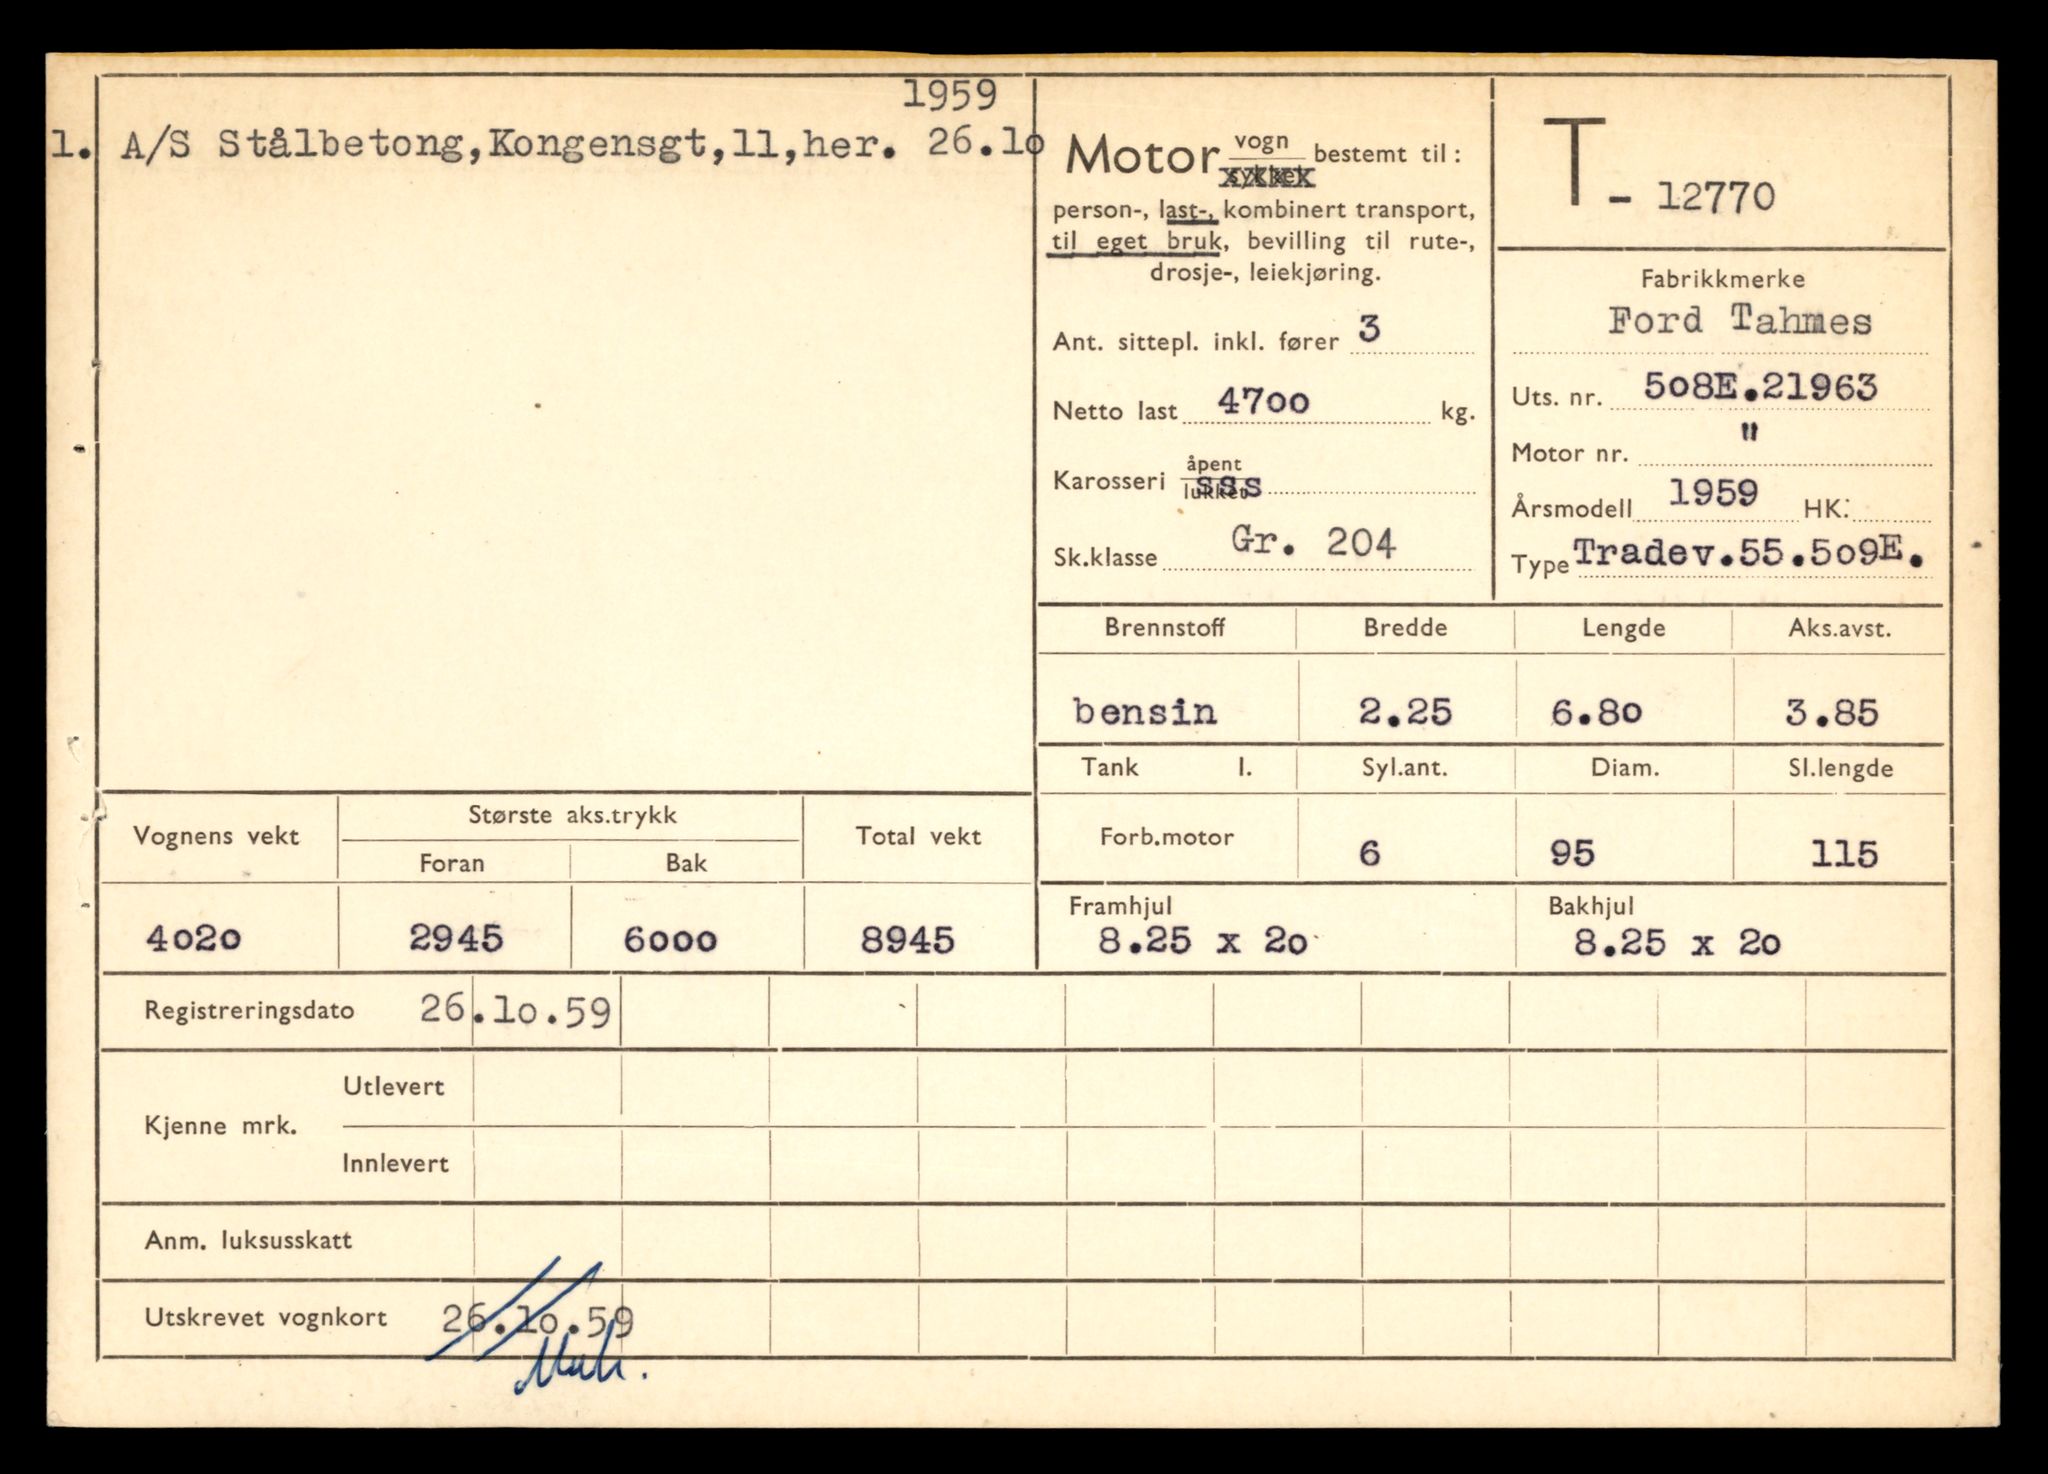 1959
1. A/S Stålbetong,Kongensgt,11,her. 26.10
Motor vogn bestemt til:
sykkel
person-, last-, kombinert transport,
til eget bruk, bevilling til rute-,
drosje-, leiekjøring.
Ant. sittepl. inkl. fører 3
Netto last 4700 kg.
Karosseri åpent
lukket sss
Sk.klasse Gr. 204
T - 12770
Fabrikkmerke
Ford Tahmes
Uts. nr. 508E.21963
Motor nr. "
Årsmodell 1959 HK:
Type Tradev.55.509E.
Brennstoff Bredde Lengde Aks.avst.
bensin 2.25 6.80 3.85
Tank l. Syl.ant. Diam. Sl.lengde
Forb.motor 6 95 115
Framhjul Bakhjul
8.25 x 20 8.25 x 20
Vognens vekt Største aks.trykk Total vekt
Foran Bak
4020 2945 6000 8945
Registreringsdato 26.10.59
Utlevert
Kjenne mrk.
Innlevert
Anm. luksusskatt
Utskrevet vognkort 26.10.59